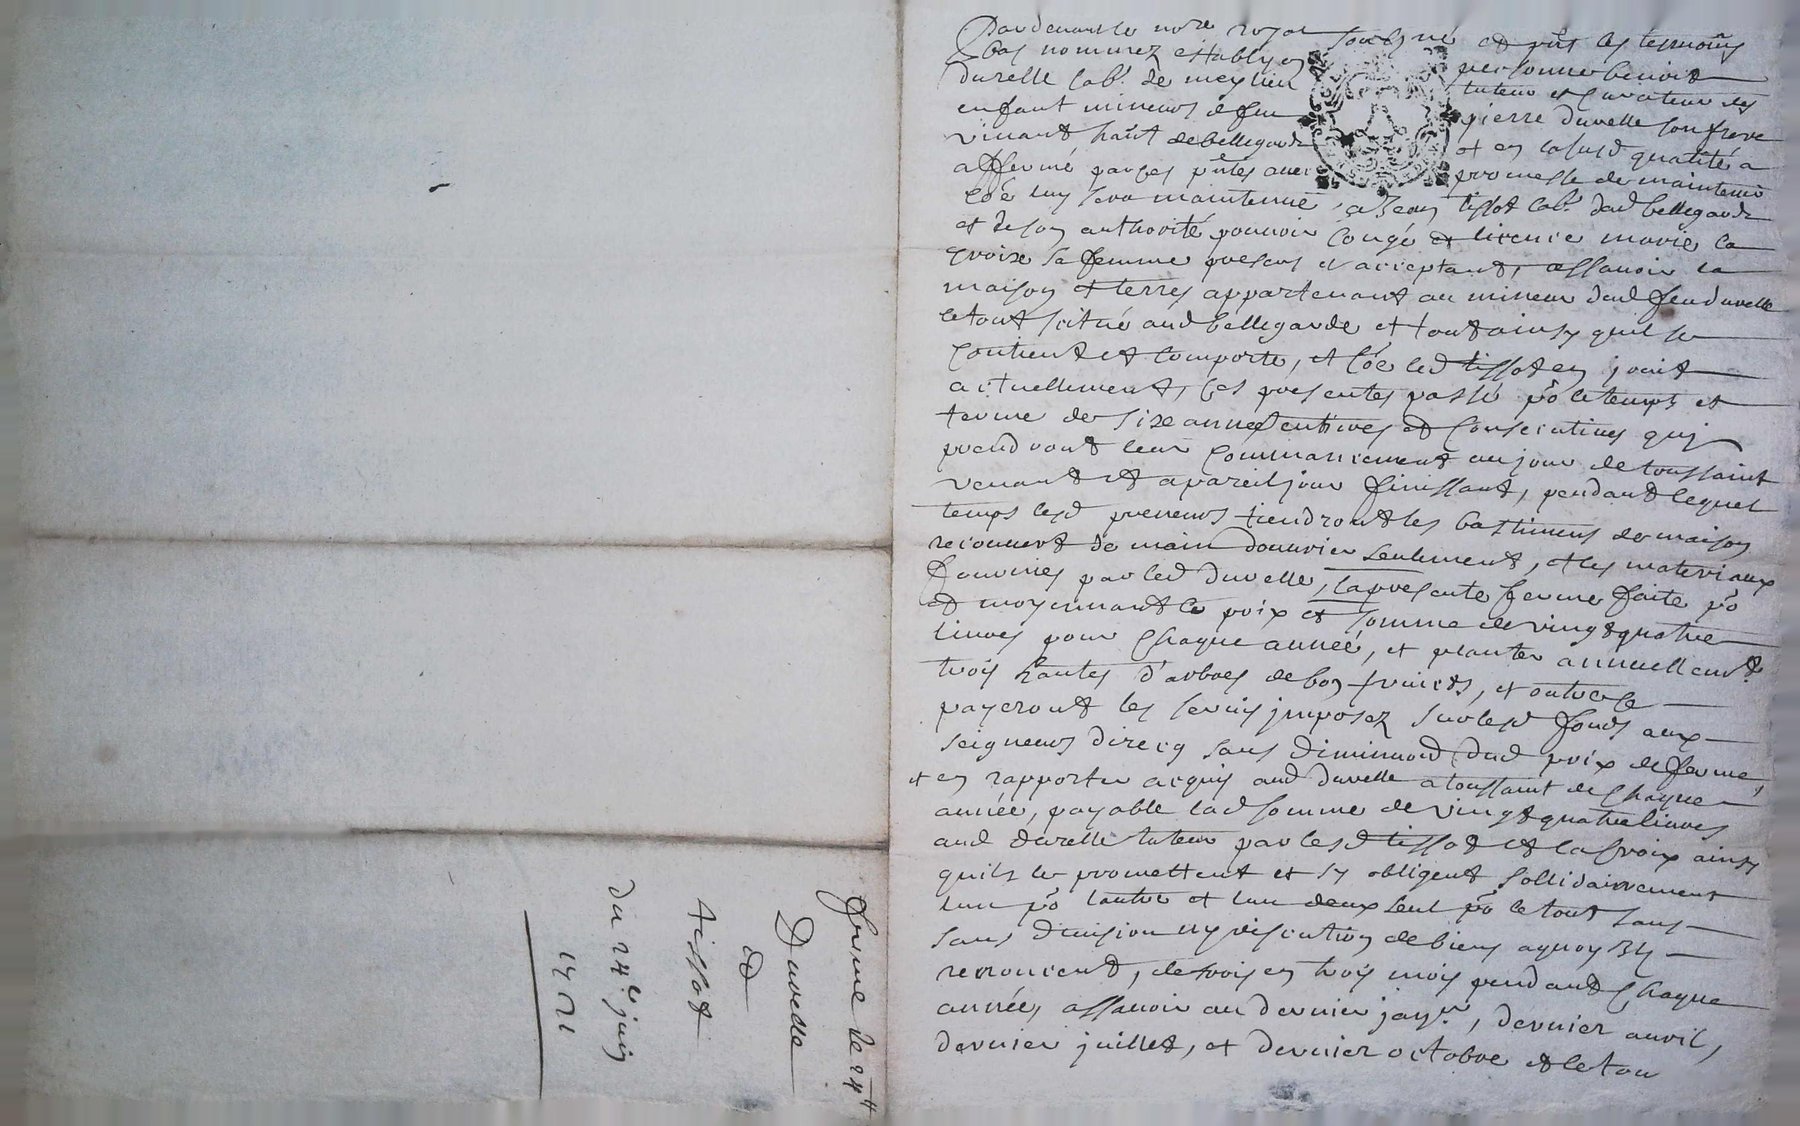 Pardevant le no.re royal soubsigné et pñts les tesmoins
bas nommez estably en personne benoist
Duvelle lab.r de meylieu tuteur et curateur des
enfant mineurs de feu pierre duvelle son frere
vivant hañt de bellegarde et en lasusd qualité a
affermé par ces pñtes avec promesse de maintenir
coe luy sera maintenue, a Jean tissot lab.r dud bellegarde
et de son authorité pouvoir congé et licence marie la
croix sa femme presens et acceptant, assavoir la
maison et terres appartenant au mineur dud feu duvelle
le tout scitué aud bellegarde et tout ainsy quil se
contient et comporte, et coe led tissot en jouit
actuellement, ces presentes passé po le temps et
terme de six anneé entires et consecutives quj
prendront leur commancement au jour de toussaint
venant et a pareil jour finissant, pendant lequel
temps lesd preneurs tiendront les bastimens de maison
recouvert de main douvrier seulement, et les materiaux
fournies par led duvelle, la presente ferme faite po
et moyennant le prix et somme de vingt quatre
livres pour chaque anneé, et planter annuellem.t
trois hantes d'arbres de bon fruicts, et outre ce
payeront les servis jmposez sur lesd fonds aux
seigneurs direcq sans diminuõn dud prix de ferme
et en rapporter acquis aud duvelle a toussaint de chaque
anneé, payable lad somme de vingt quatre livres
aud duvelle tuteur par lesd tissot et la croix ainsy
quils le promettent et sy obligent sollidairement
lun po lautre et lun deux seul po le tout sans
sans division ny discution de biens a quoy ils
renoncent, de trois en trois mois pendant chaque
anneé, assavoir au dernier janv.r, dernier avril,
dernier juillet, et dernier octobre et le tou
ferme de 24 ₶
Duvelle
et
tissot
du 24.e juin
1721